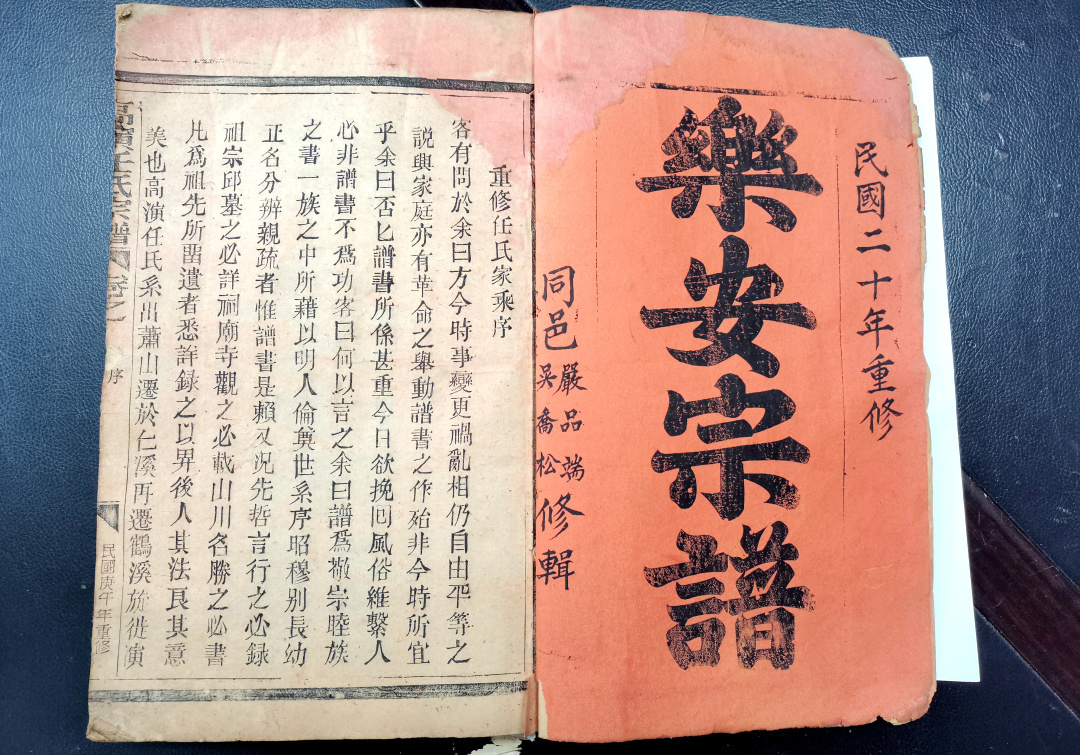 民國二十年重修
樂安宗譜
同邑嚴品端吳喬松修輯
重修任氏家乘序
客有問於余曰方今時事變更禍亂相仍自由平等之
說與家庭亦有革命之舉動譜書之作殆非今時所宜
乎余曰否匕譜書所係甚重今日欲挽回風俗維繫人
心非譜書不爲功客曰何以言之余曰譜爲敬宗睦族
之書一族之中所藉以明人倫奠世系序昭穆别長幼
正名分辨親疏者惟譜書是賴又況先哲言行之必録
祖宗邱墓之必詳祠廟寺觀之必載山川名勝之必書
凡爲祖先所留遺者悉詳録之以畀後人其法良其意
美也高演任氏系出蕭山遷於仁溪再遷鶴溪旋徙演
氏宗譜 卷之 序 民國庚午年重修